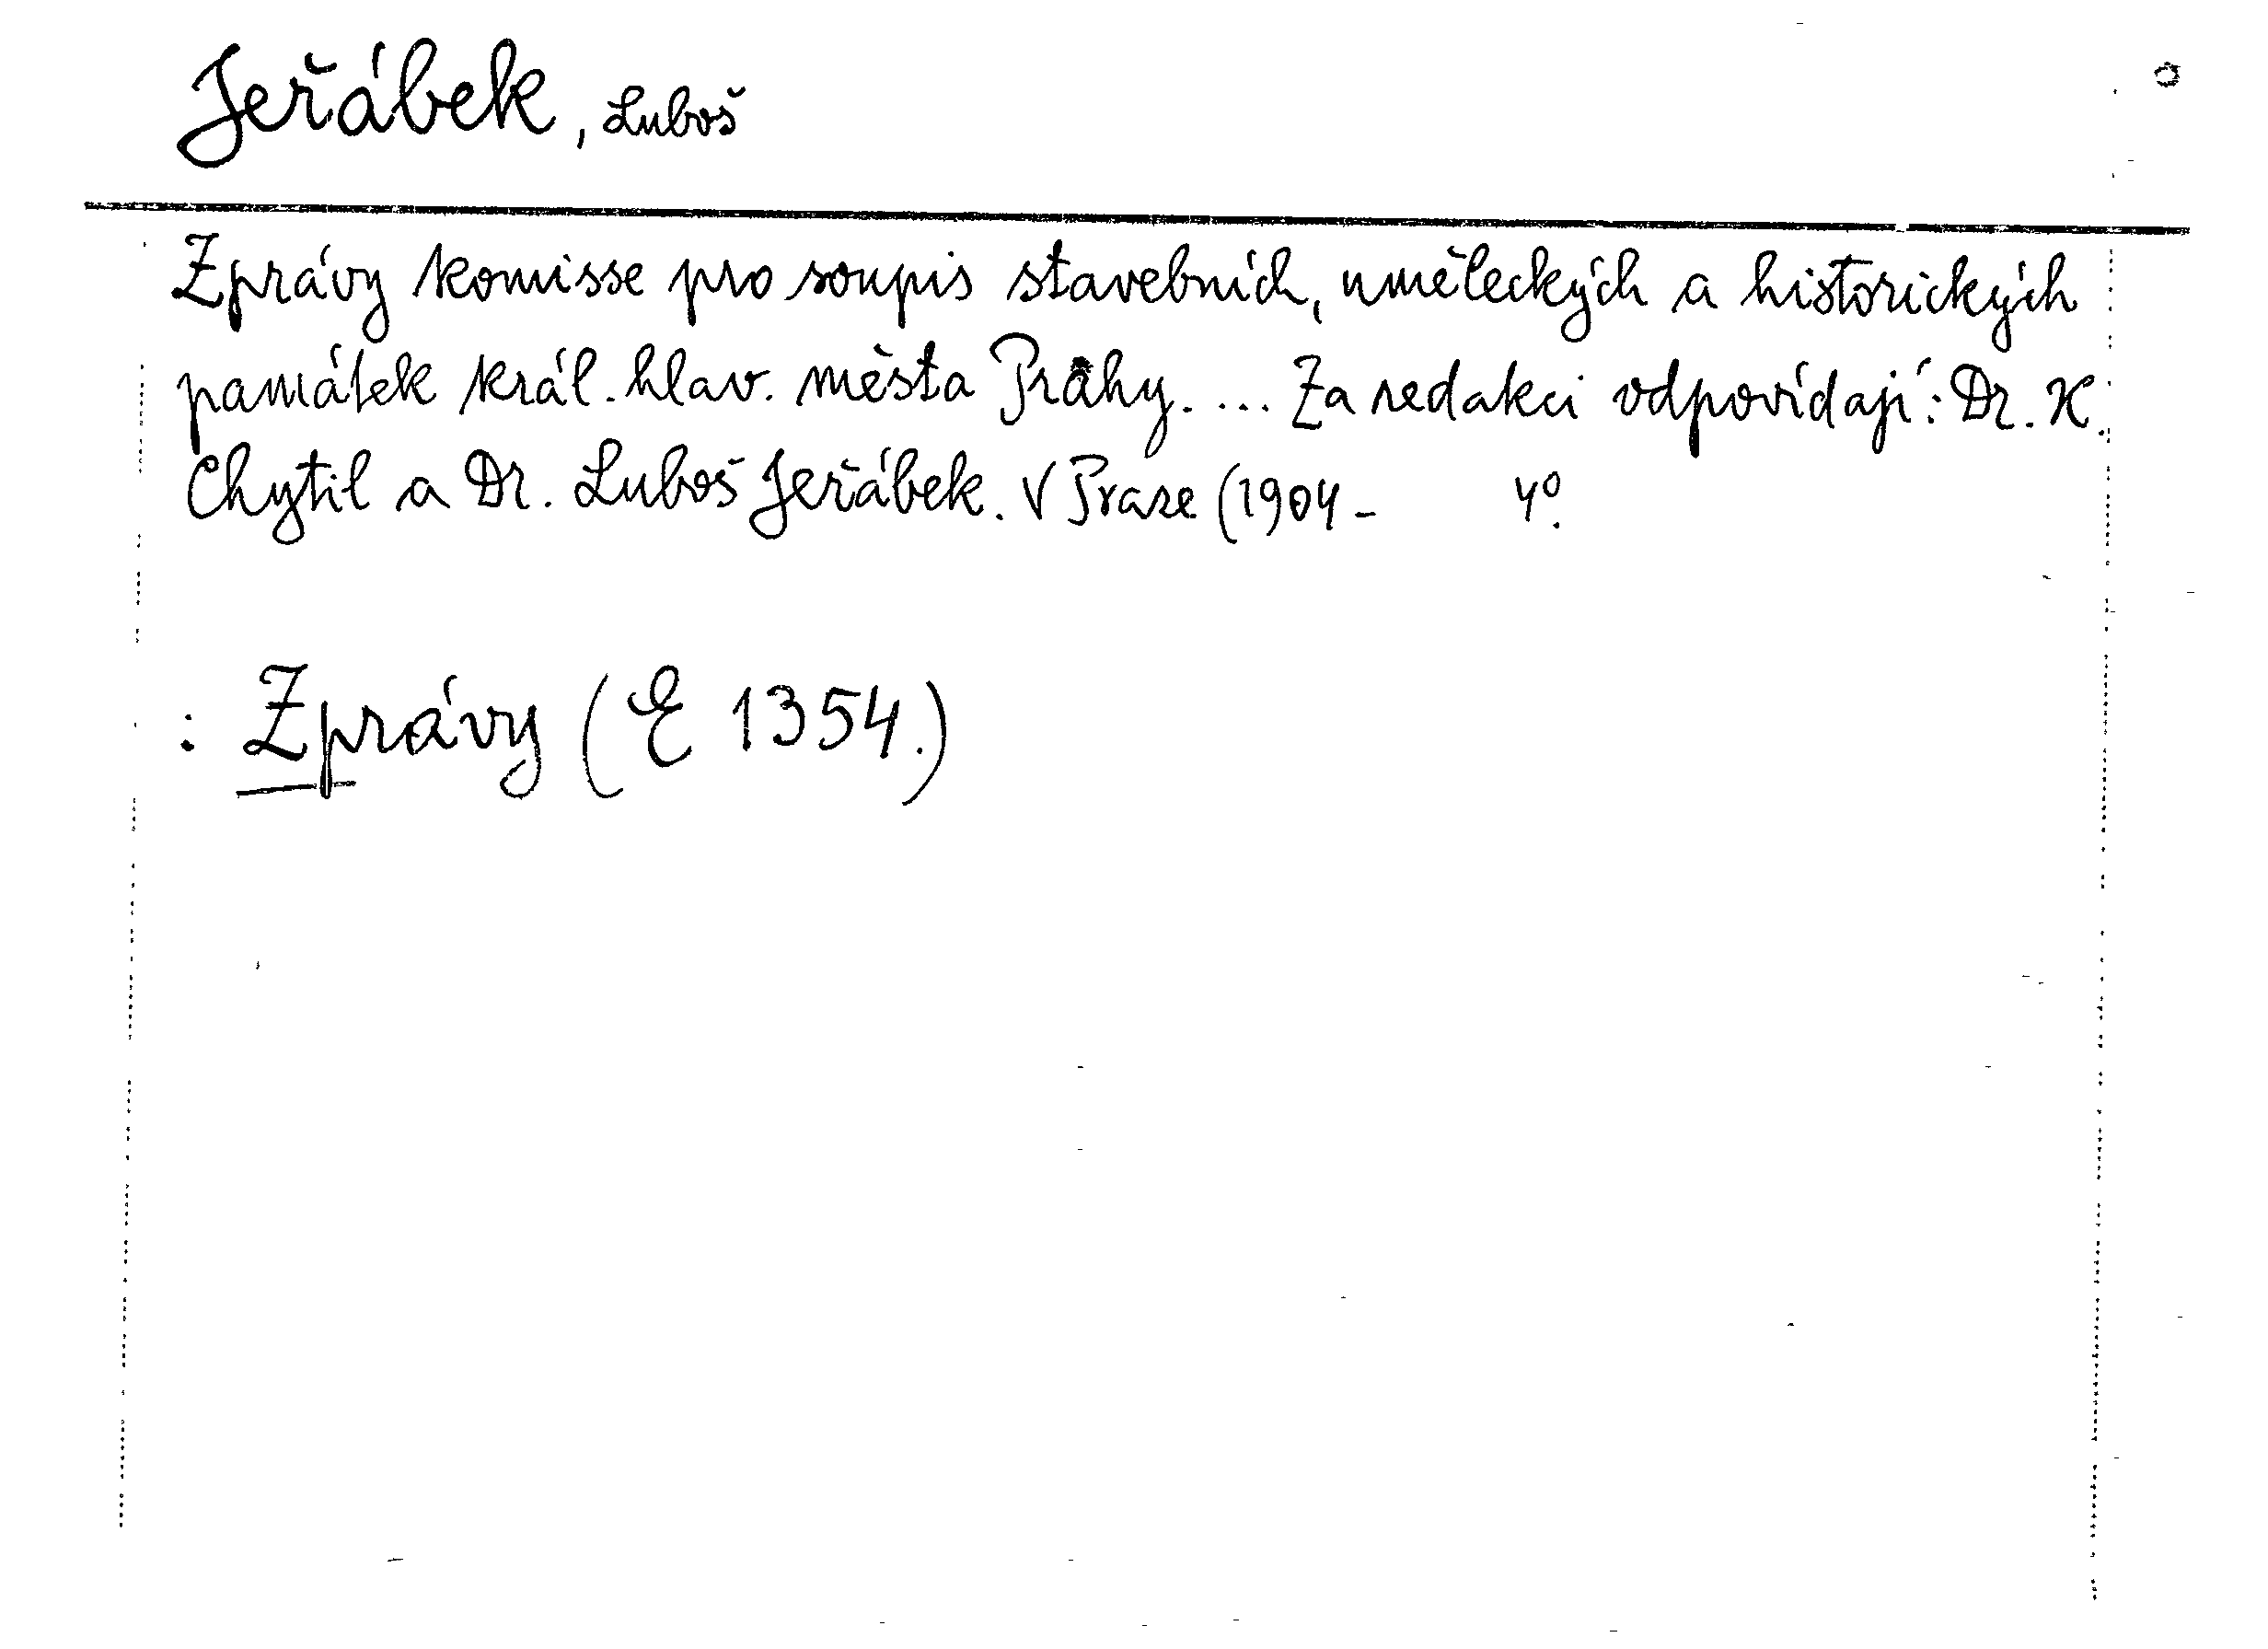 Jeřábek, Luboš
Zprávy komisse pro soupis stavebních, uměleckých a historických
památek král. hlav. města Prahy. ... Za redakci odpovídají: Dr. K.
Chytil a Dr. Luboš Jeřábek. V Praze (1904- 4°.
: Zprávy (E 1354.)